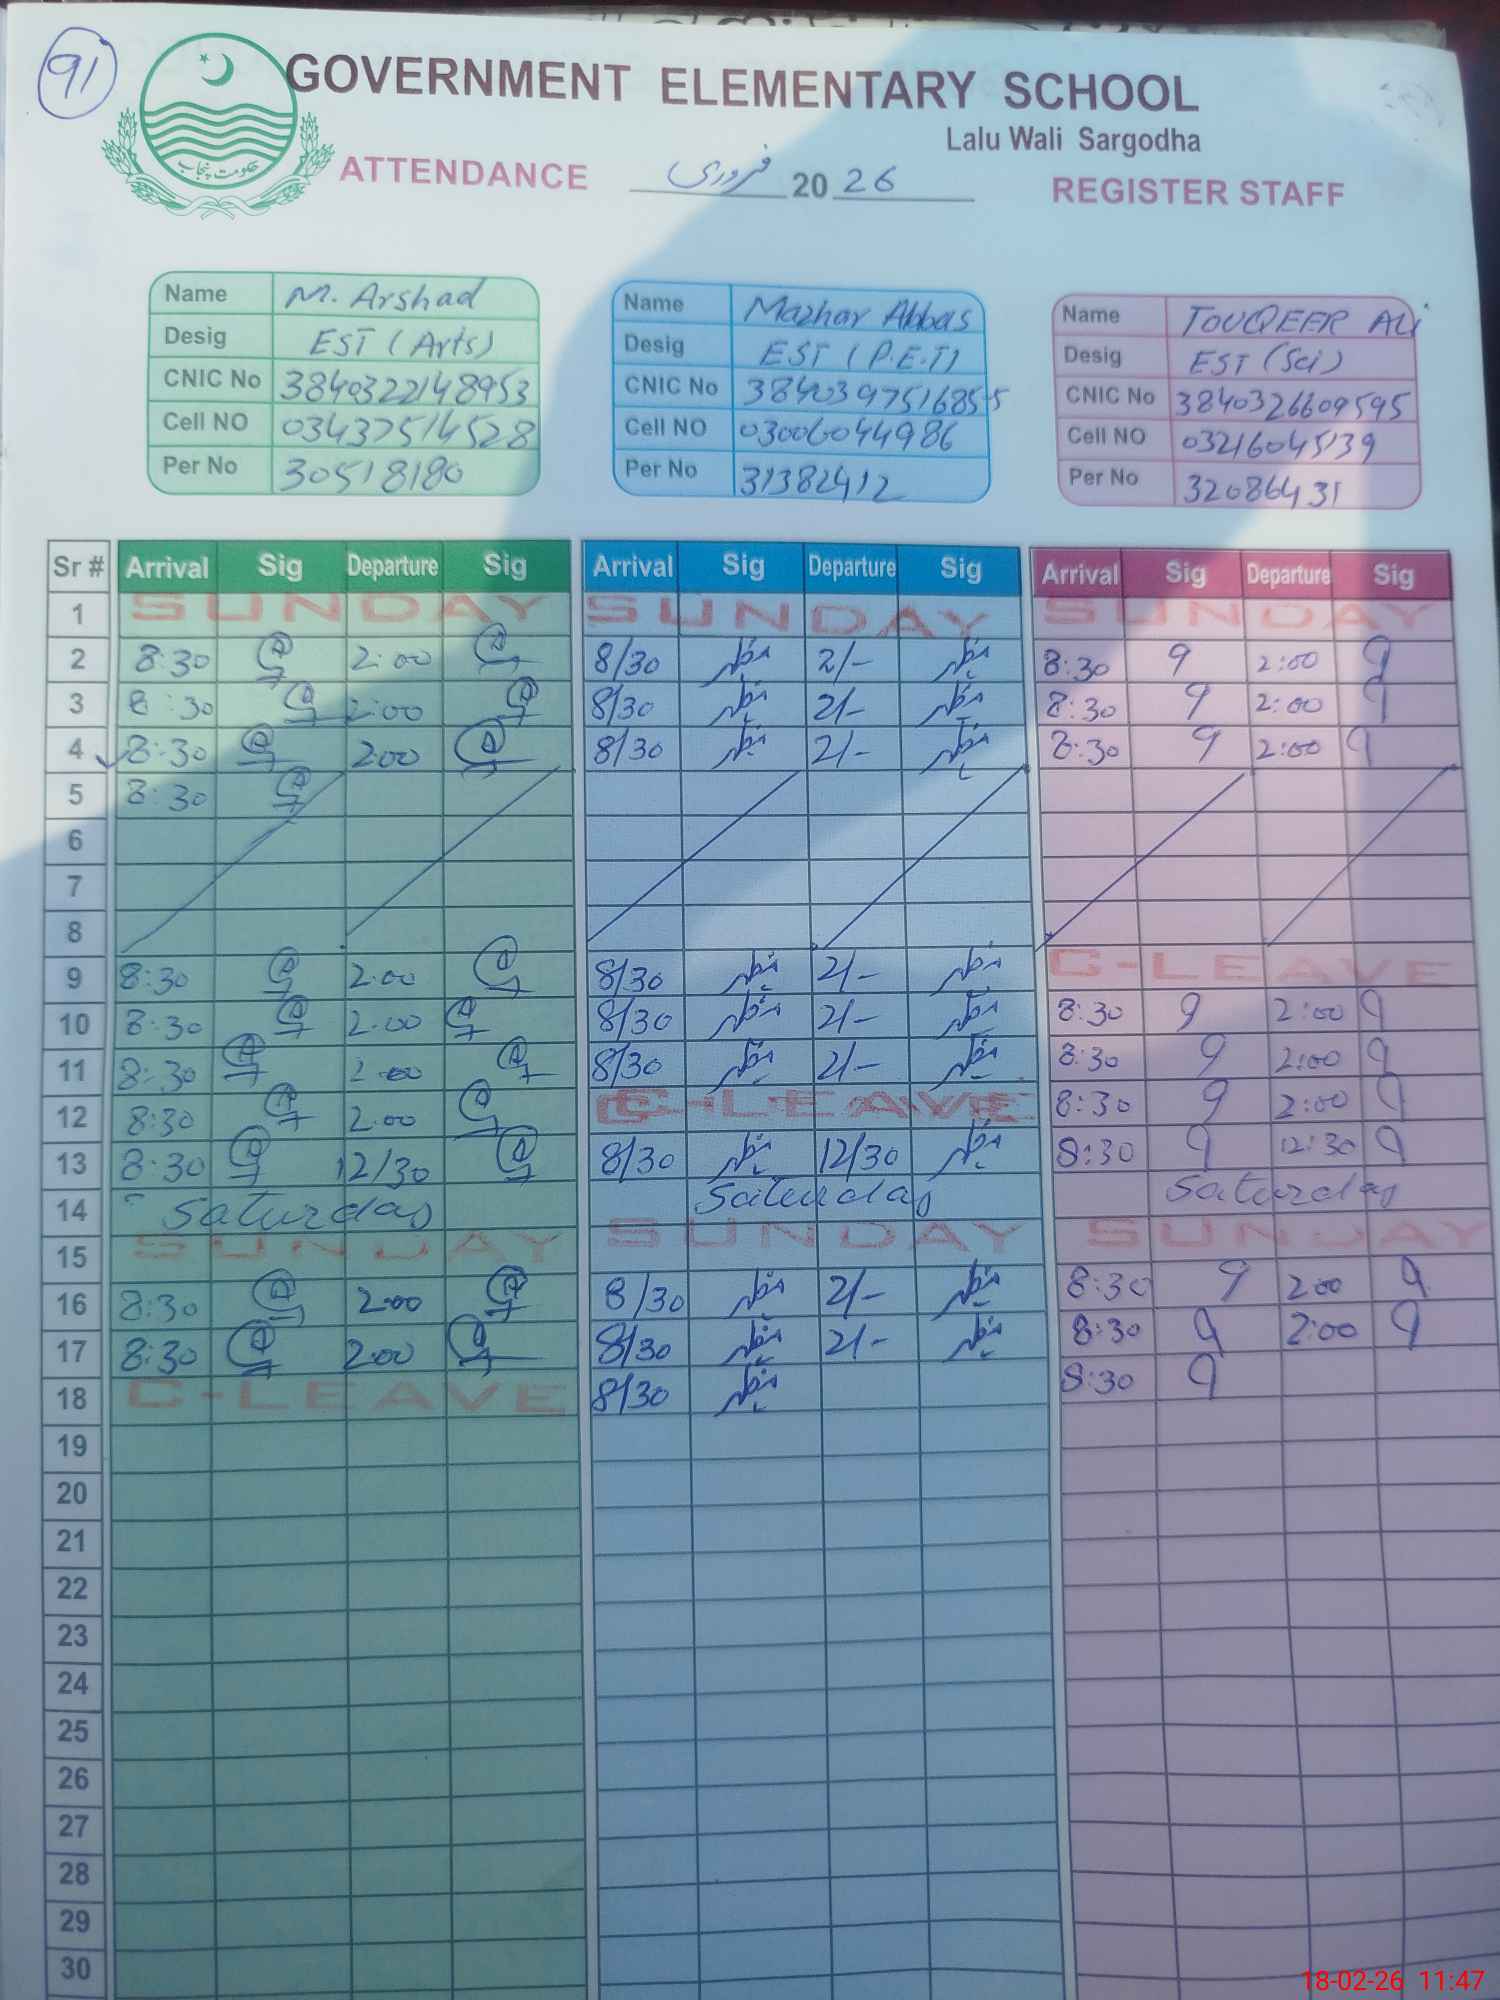 91
GOVERNMENT ELEMENTARY SCHOOL
Lalu Wali Sargodha
حکومت پنجاب
ATTENDANCE فروری 2026 REGISTER STAFF
Name M. Arshad
Desig EST (Arts)
CNIC No 3840322148953
Cell NO 03437514528
Per No 30518180
Name Mazhar Abbas
Desig EST (P.E.T)
CNIC No 3840397516855
Cell NO 03006044986
Per No 31382412
Name TOUQEER ALi
Desig EST (Sci)
CNIC No 3840326609595
Cell NO 03216045139
Per No 32086431
Sr # Arrival Sig Departure Sig Arrival Sig Departure Sig Arrival Sig Departure Sig
1 SUNDAY SUNDAY SUNDAY
2 8:30 2:00 8/30 2/- 8:30 2:00
3 8:30 2:00 8/30 2/- 8:30 2:00
4 8:30 2:00 8/30 2/- 8:30 2:00
5 8:30
6
7
8
9 8:30 2:00 8/30 2/- C-LEAVE
10 8:30 2:00 8/30 2/- 8:30 2:00
11 8:30 2:00 8/30 2/- 8:30 2:00
12 8:30 2:00 C-LEAVE 8:30 2:00
13 8:30 12/30 8/30 12/30 8:30 12:30
14 Saturday Saturday Saturday
15 SUNDAY SUNDAY SUNDAY
16 8:30 2:00 8/30 2/- 8:30 2:00
17 8:30 2:00 8/30 2/- 8:30 2:00
18 C-LEAVE 8/30 8:30
19
20
21
22
23
24
25
26
27
28
29
30
18-02-26 11:47